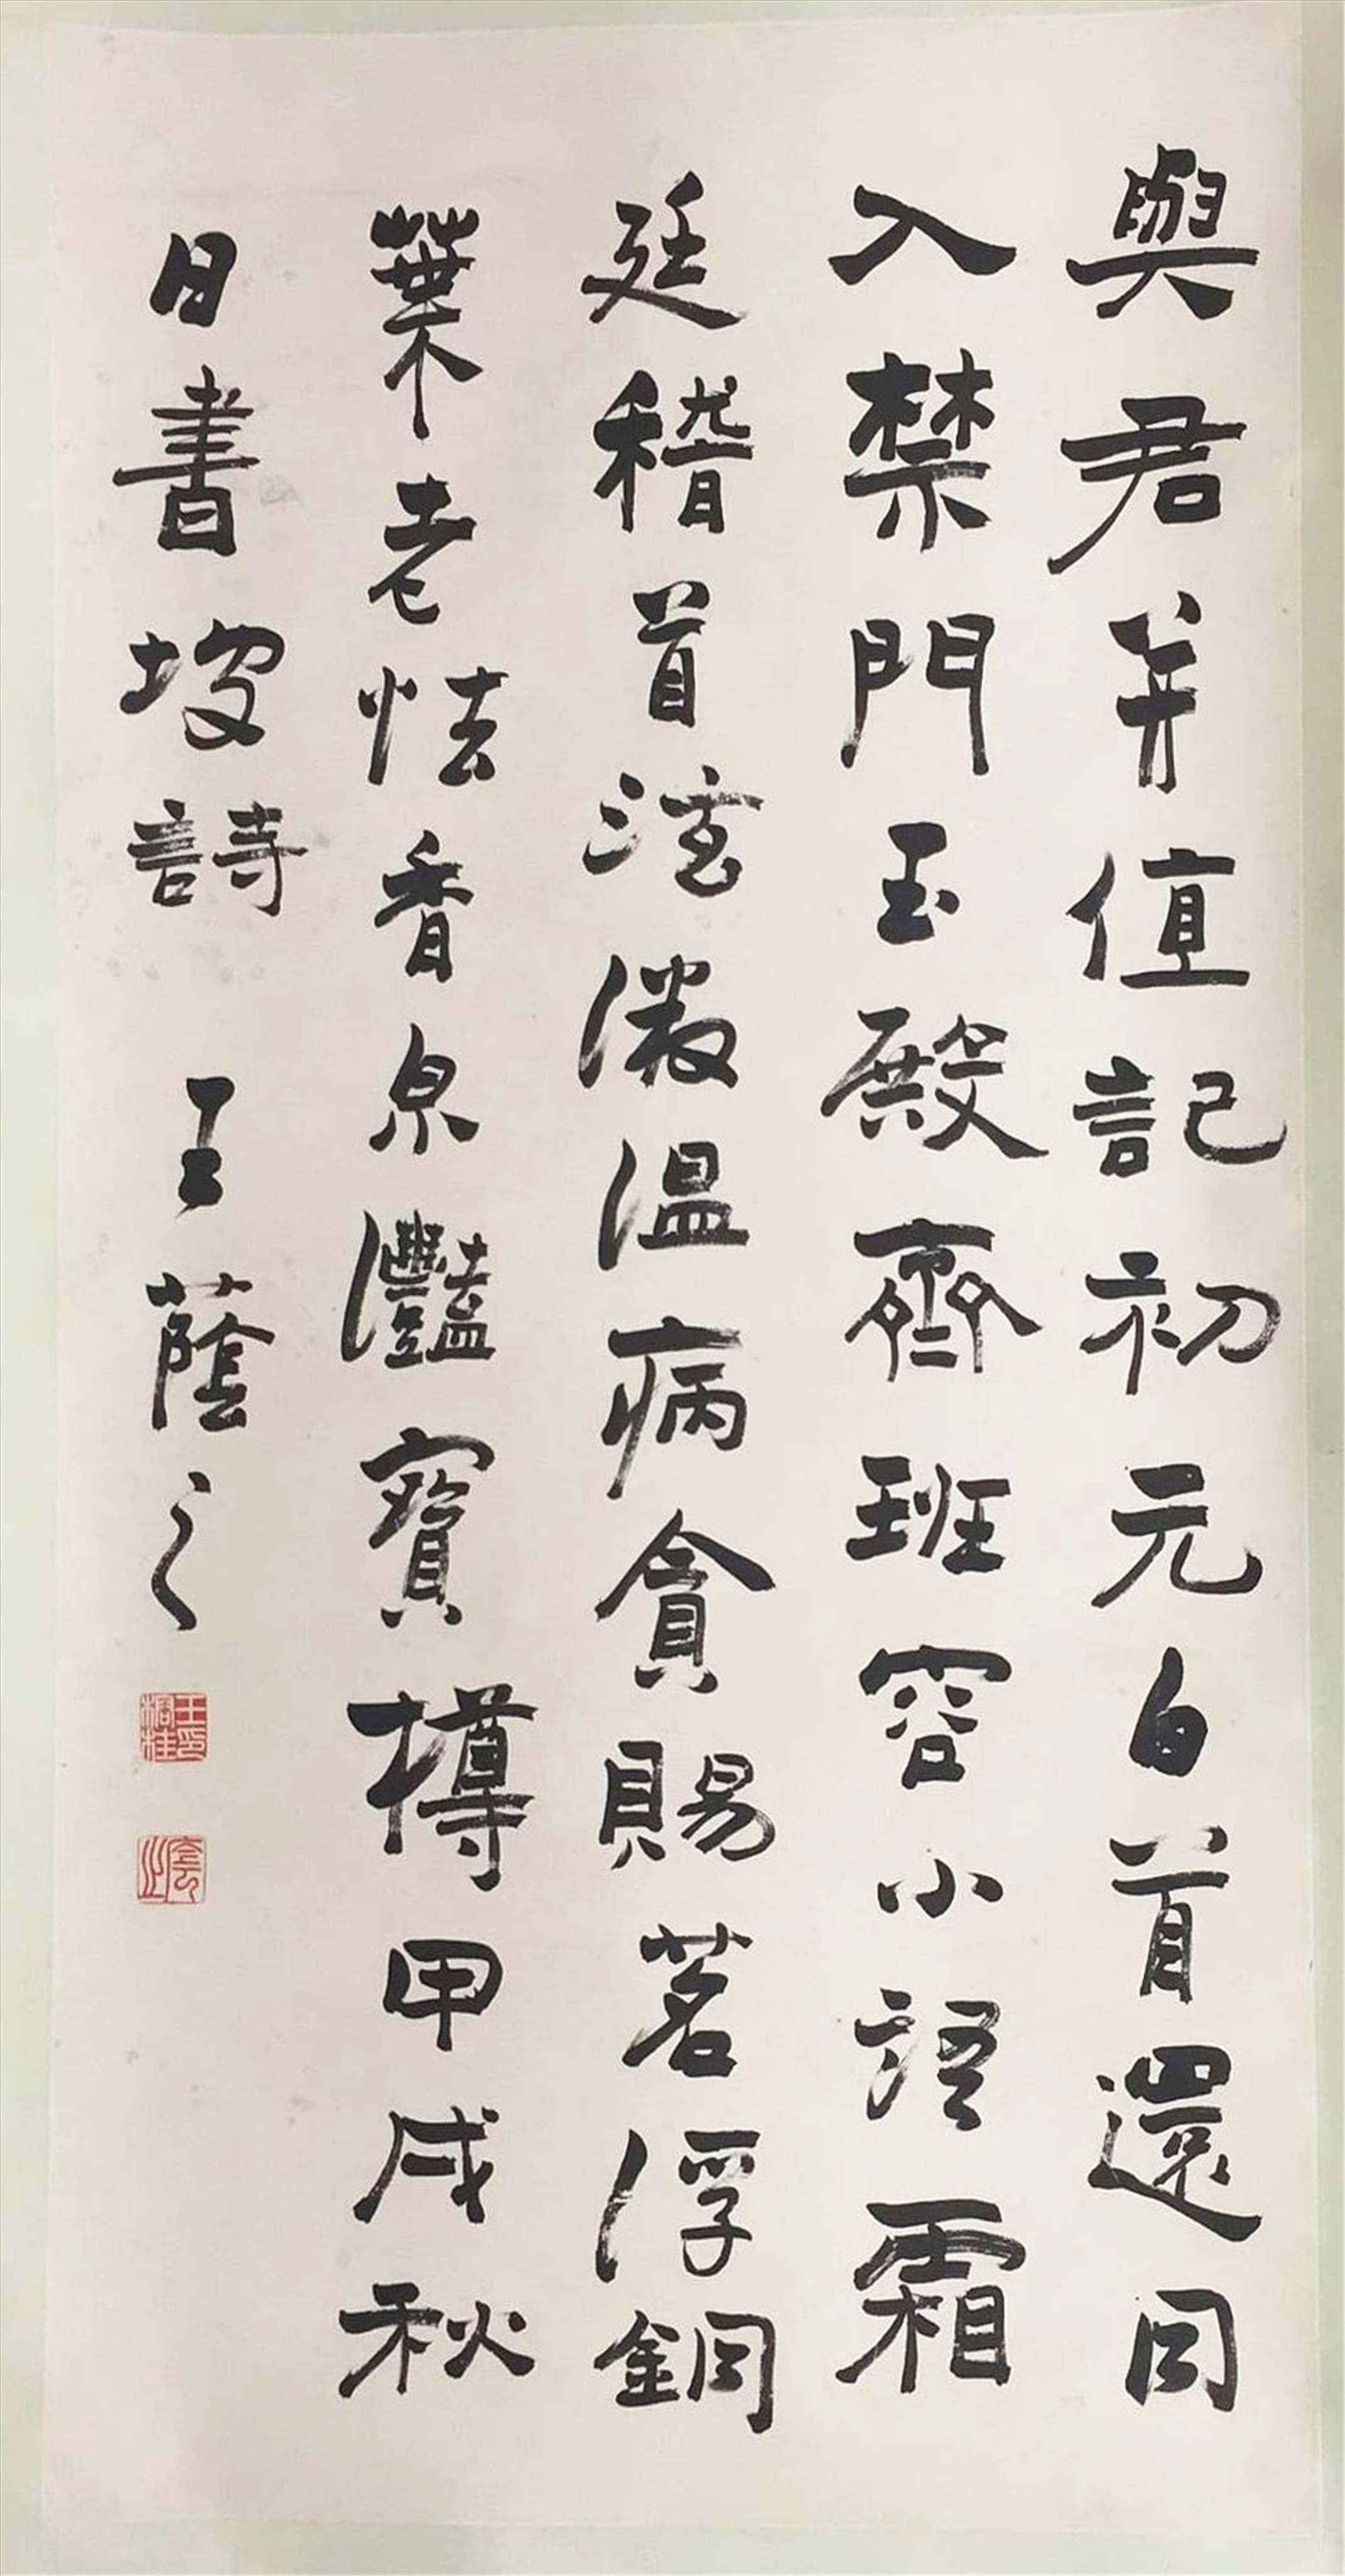 與君並值記初元白首還同
入禁門玉殿齊班容小語霜
廷稽首泫微溫病貪賜茗浮銅
葉老怯香泉灩寶樽甲戌秋
日書坡詩 王蔭之
王印桐桂
蔭之